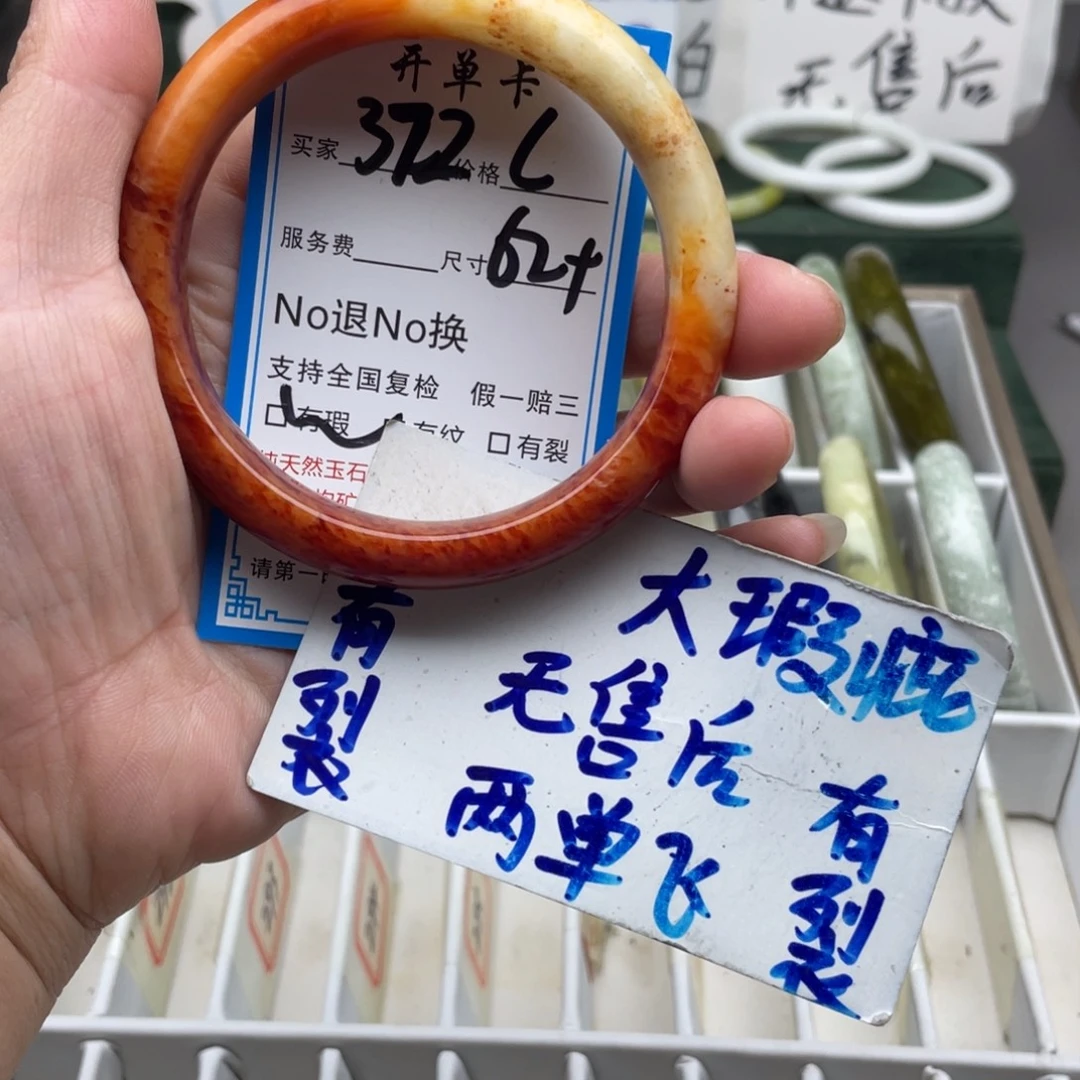 无售后
开单卡
买家 372 价格 L
服务费 尺寸 62+
No退No换
支持全国复检 假一赔三
□有瑕 有纹 □有裂
纯天然玉石
请第一
大瑕疵
无售后
两单飞
有裂
有裂